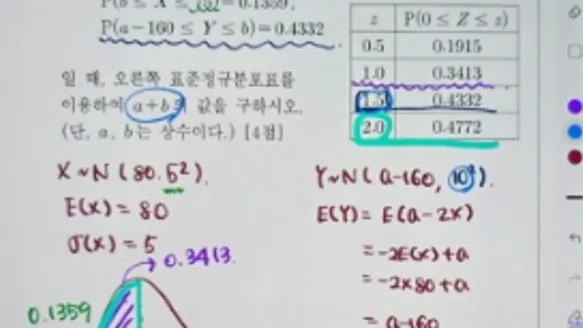 P(b ≤ X ≤ =0.1359,
P(a−160 ≤ Y ≤ b)=0.4332
일 때, 오른쪽 표준정규분포표를
이용하여 a+b의 값을 구하시오.
(단, a, b는 상수이다.) [4점]
z P(0 ≤ Z ≤ z)
0.5 0.1915
1.0 0.3413
1.5 0.4332
2.0 0.4772
X ~ N ( 80. 5²).
E(X) = 80
σ(X) = 5
0.3413.
0.1359
Y ~ N ( a-160, 10²).
E(Y) = E(a-2X)
= -2E(X)+a
= -2×80+a
= a-160